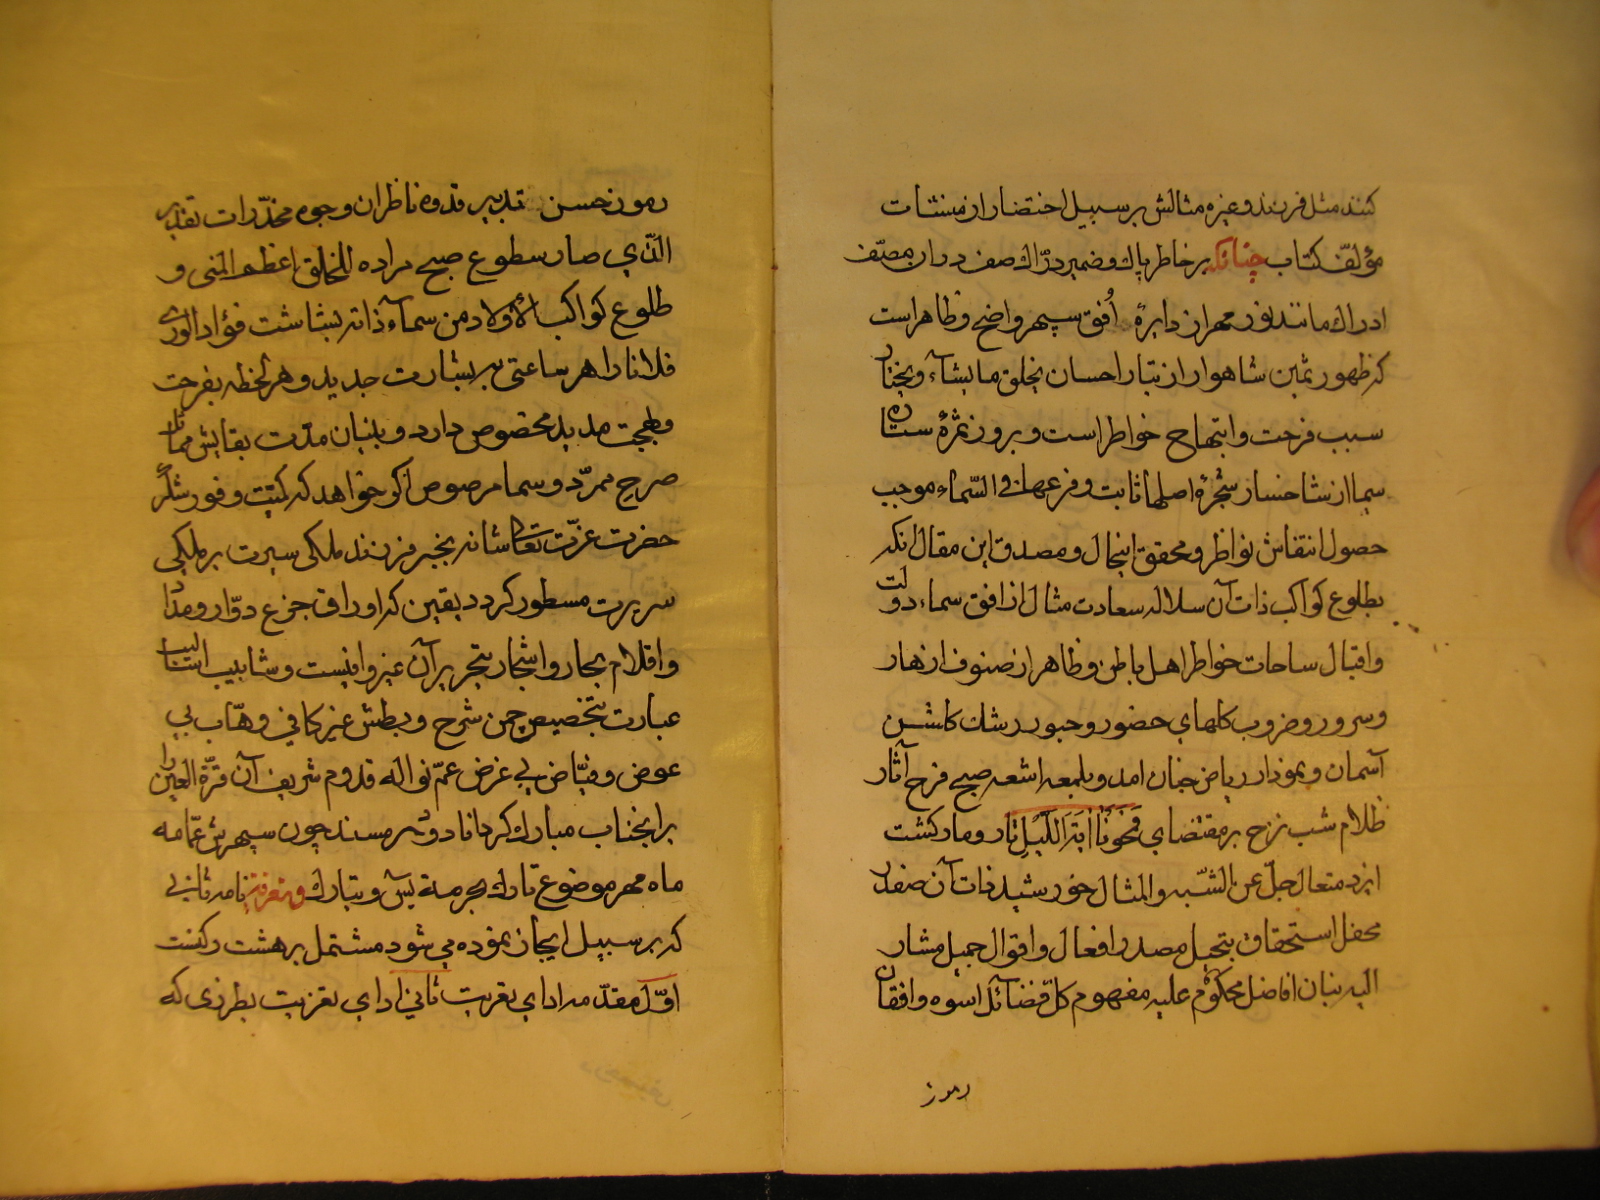 کنند مثل فرزند و غیره مثالش بر سبیل اختصار از منشئات
مؤلّف کتاب چنانکه بر خاطر پاك و ضمیر درّاك صف دران مصنّف
ادراك مانند نور مهر از دایرهٔ اُفق سپهر واضح و ظاهر است
که ظهور ثمین شاهوار از بتار احسان یخلق ما یشآء و یختار
سبب فرحت و ابتهاج خواطر است و بروز ثمرهٔ ستاره
سیما از شاخسار شجرهٔ اصلها ثابت و فرعها فی السّماء موجب
حصول انتقاش نواظر و محقق اینحال و مصدق این مقال انکه
بطلوع کواکب ذات آن سلاله سعادت مثال از افق سماء دولت
و اقبال ساحات خواطر اهل باطن و ظاهر از صنوف ازهار
و سرور و ضروب کلهای حضور و حبور رشك کلشن
آسمان و نمودار ریاض جنان امد و بلمعه اشعه صبح فرح آثار
ظلام شب نزح بر مقتضای فَمَحَونَا اٰیَةَ الَّیلِ تار و مار کشت
ایزد متعال جلّ عن الشّبه والمثال خورشید ذات آن صفدر
محفل استحقاق بتجیل مصدر افعال و اقوال جمیل مشار
الیه بنان افاضل محکوم علیه مفهوم کل فضائل اسوه واقفان
رموز
رموز حسن تدبیر قدوه ناظران وجوه مخدّرات تقدیر
الذّی صار سطوع صبح مراده للخلق اعظم المنی و
طلوع کواکب الأولاد من سمآء ذاته بشاشت فؤاد الوری
فلانا را هر ساعتی به بشارت جدید و هر لحظه بفرحت
و بهجت مدید مخصوص دارد و بنیان مدّت بقایش مماثل
صرح ممرّد و سما مرصوص اکو خواهد که کمیّت وفور شکر
حضرت عزّت تعالی شانه بخبر فرزند ملکی سیرت بر ملیکی
سریرت مسطور کردد بیقین که اوراق جزع دوّار و مداد
و اقلام بحار و اشجار بتحریر آن غیر وافیست و شابیب اسالیب
عبارت بتخصیص چمن شرح و بطش غیر کافی وهّاب بی
عوض و فیّاض بی غرض عمّ نواله قدوم شریف آن قرّة العین را
بر ابخناب مبارك کرداناد و در مسند چون سپهرش عمّامه
ماه مهر موضوع تارك بحرمة یس و تبارك و تعزیت نامه ثانی
که بر سبیل ایجاز نموده می شود مشتمل بر هشت رکنست
اوّل مقدّمه ادای تعزیت ثانی ادای تعزیت بطرزی که